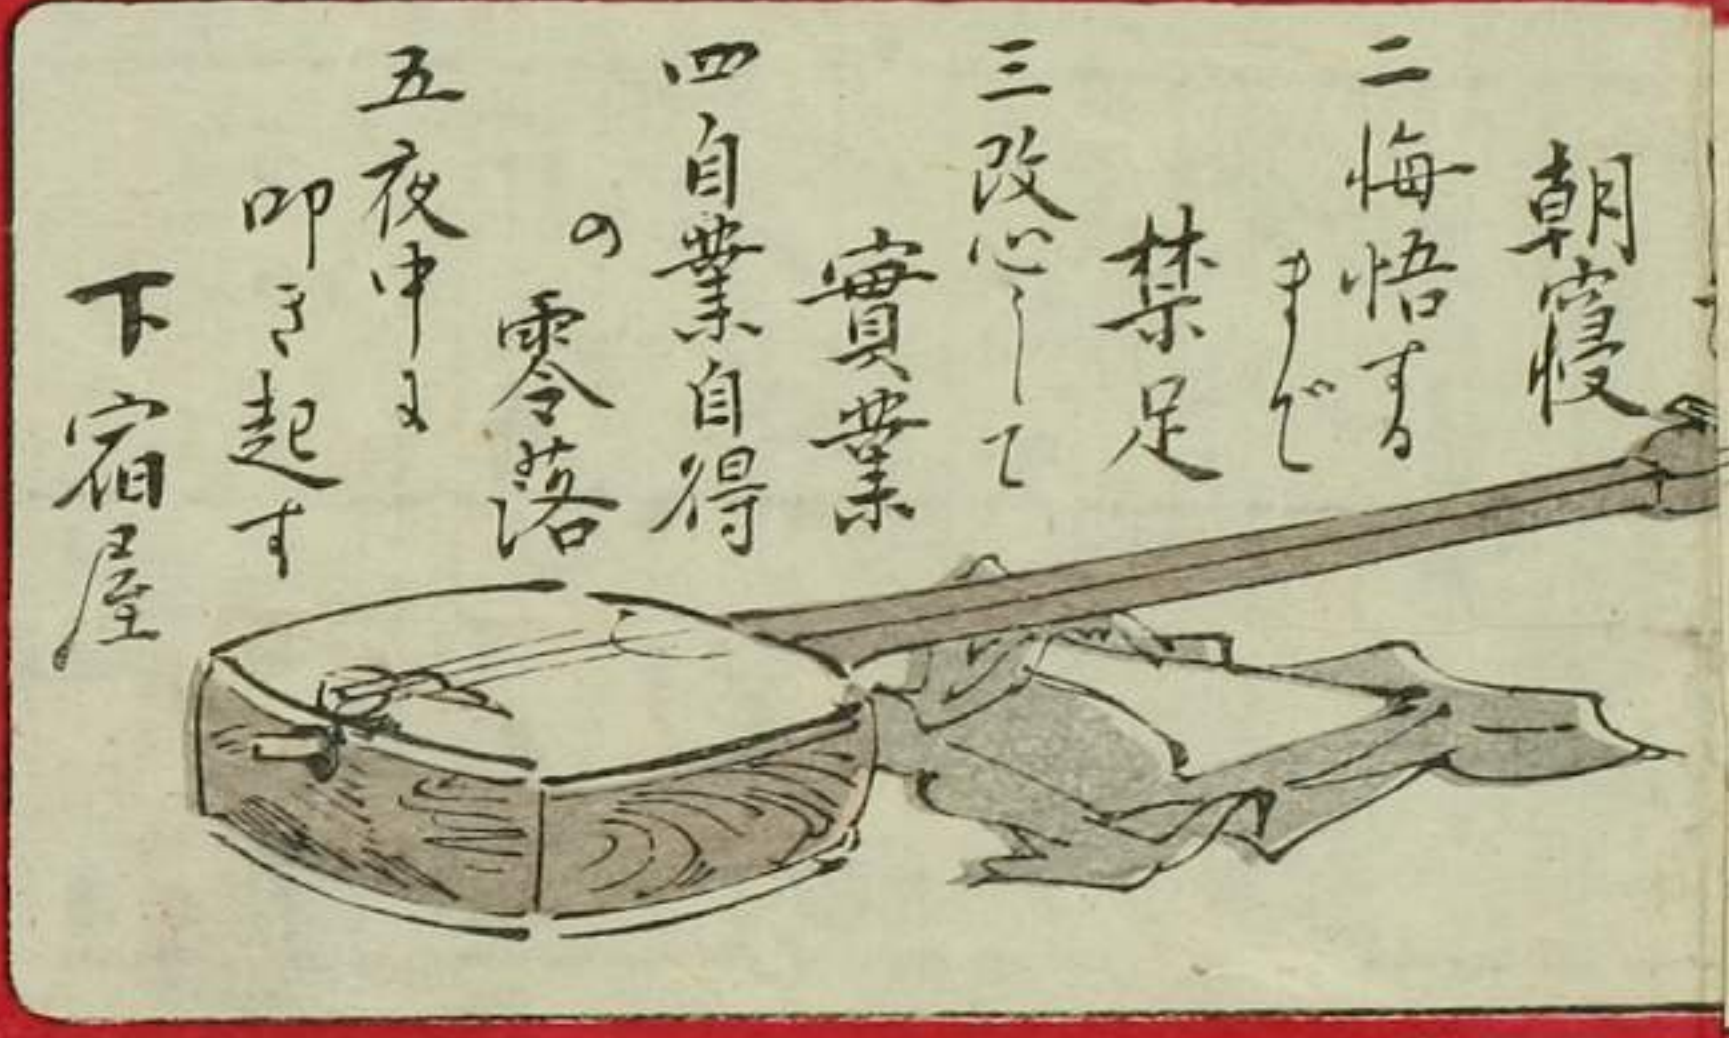 朝寝
二悔悟する
まで
禁足
三改心して
實業
四自業自得
の
零落
五夜中に
叩き起す
下宿屋